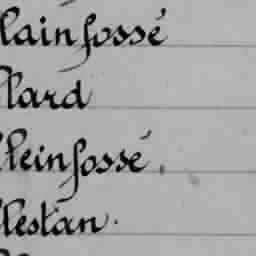 lainfossé
llard
lleinfossé.
llestan.